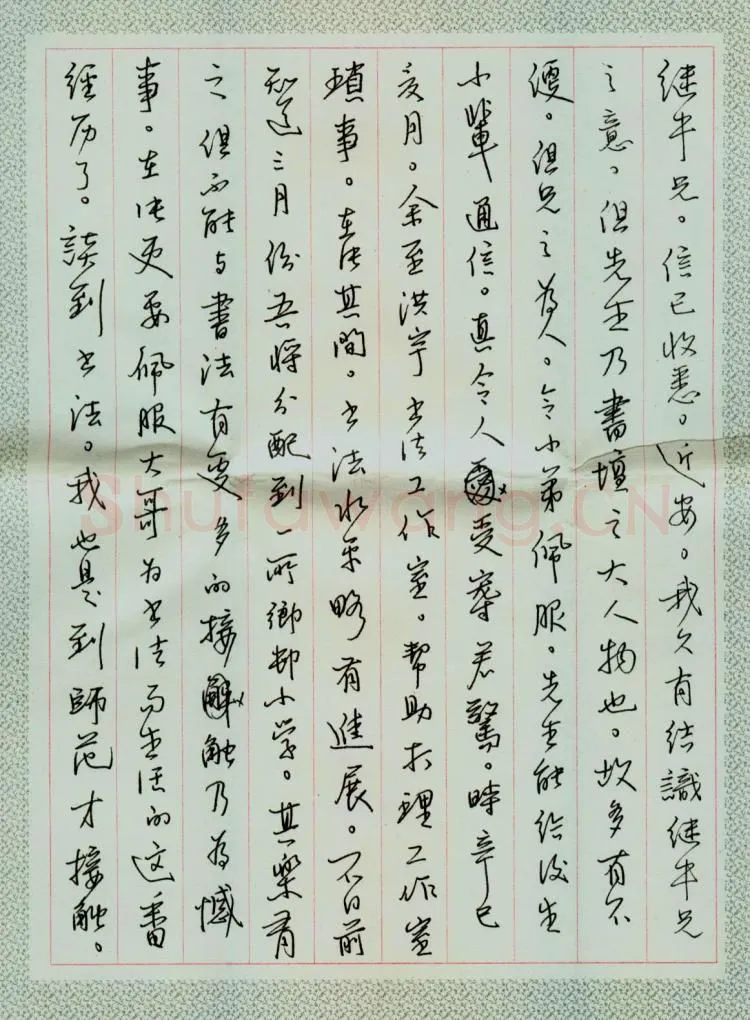 继牛兄。信已收悉。近安。我久有结識继牛兄
之意。但先生乃書壇之大人物也。故多有不
便。但兄之為人。令小弟佩服。先生能给後生
小輩通信。真令人受寵若驚。時辛巳
亥月。余至洪宇书法工作室。帮助打理工作室
瑣事。在其間。书法水平略有進展。不日前
知道三月份吾將分配到一所鄉邨小学。其樂有
之但不能与書法有更多的接触乃為憾
事。在此更要佩服大哥为书法而生活的这番
经历了。談到书法。我也是到師范才接触。
Shufawang.CN